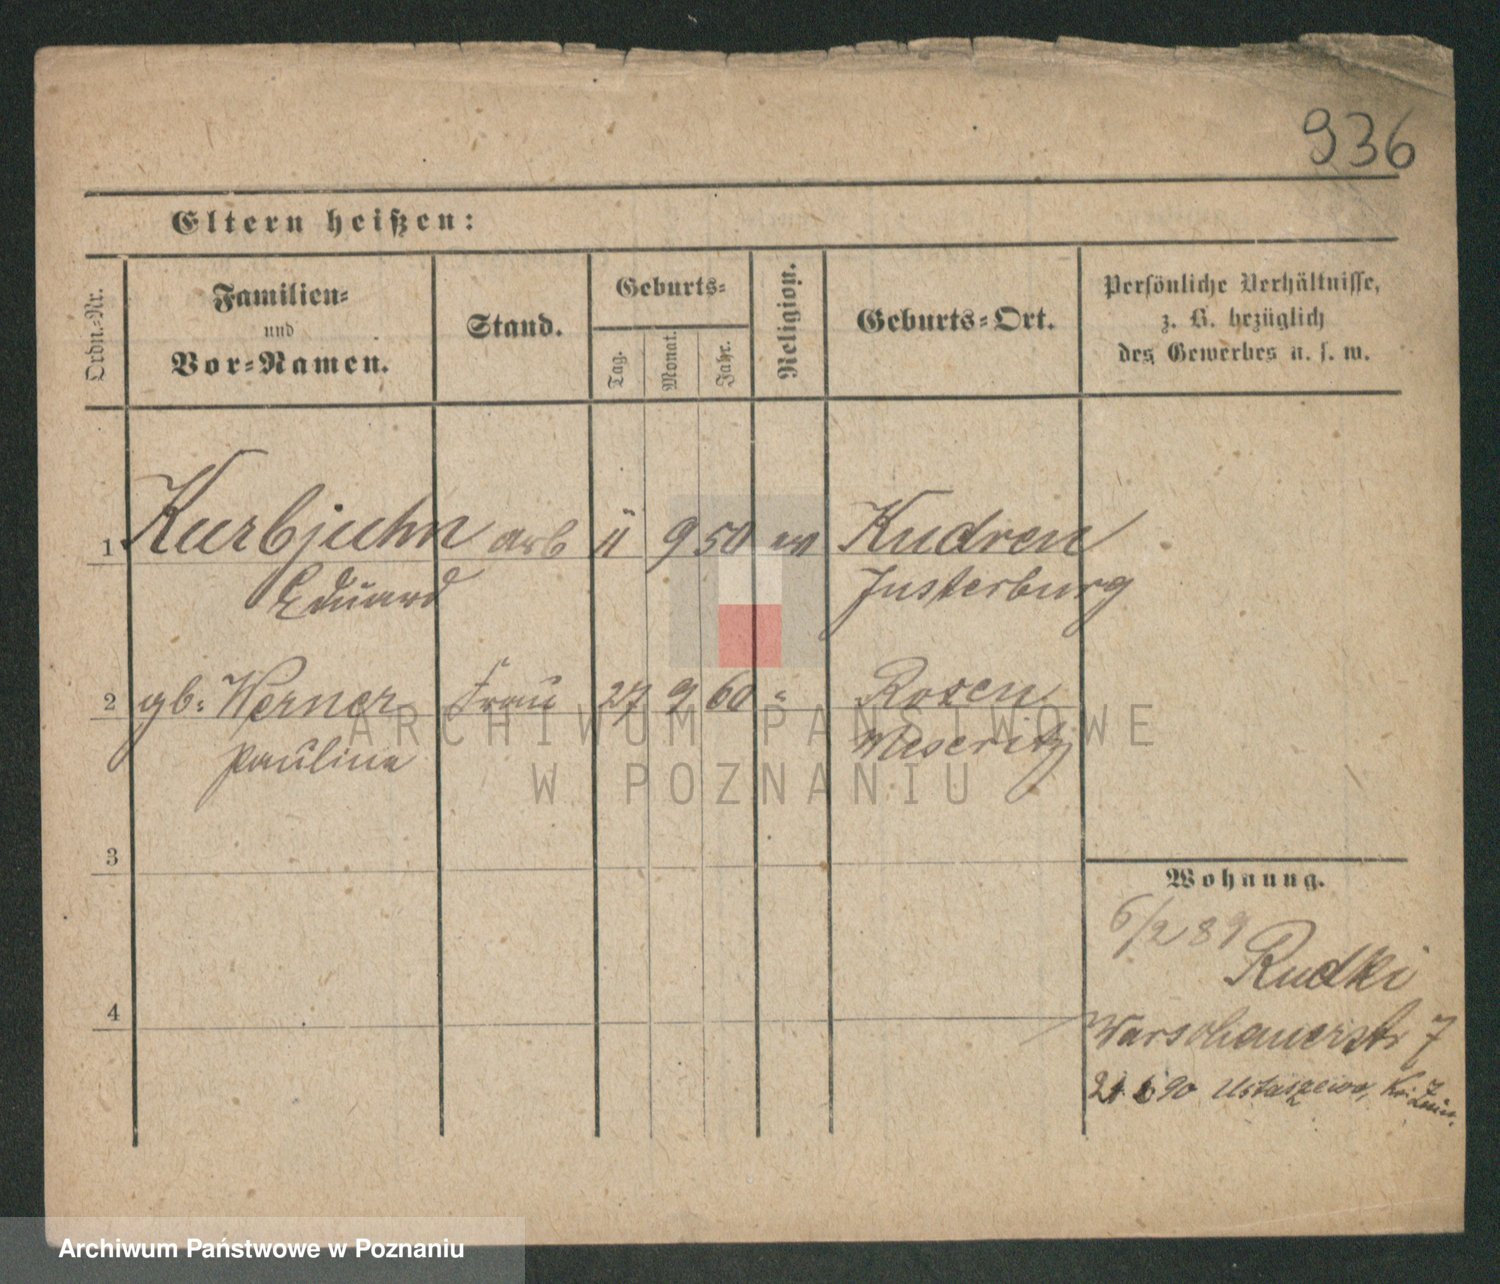 936
Eltern heißen:
Ordn.-Nr.
Familien-
und
Vor-Namen.
Stand.
Geburts-
Tag.
Monat.
Jahr.
Religion.
Geburts-Ort.
Persönliche Verhältnisse,
z. B. bezüglich
des Gewerbes u. s. w.
1 Kurbjuhn arb 11 9 50 ev Kudren
Eduard Insterburg
2 gb: Werner Frau 27 9 60 " Rosen
Pauline Meseritz
3
4
Wohnung.
6/2 89
Rudki
Warschauerstr 7
90 Ustaszewo, Kr.
ARCHIWUM PAŃSTWOWE
W POZNANIU
Archiwum Państwowe w Poznaniu